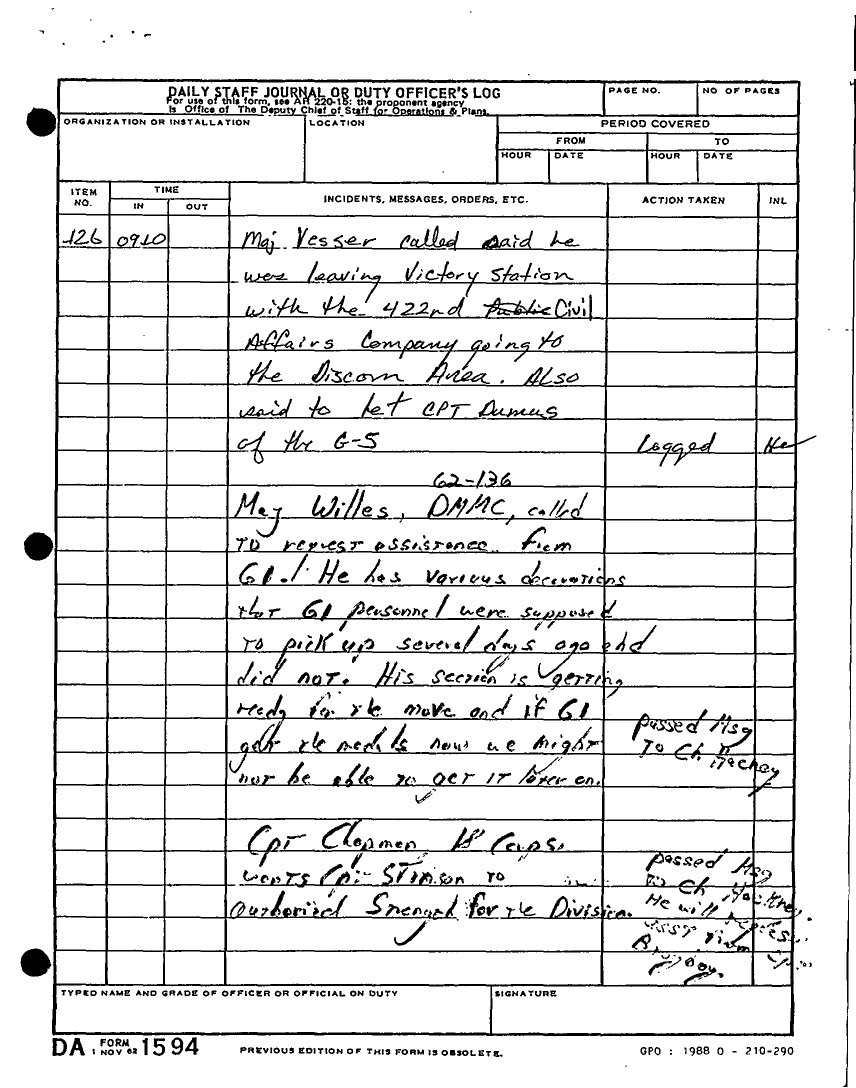 DAILY STAFF JOURNAL OR DUTY OFFICER'S LOG
For use of this form, see AR 220-15; the proponent agency
is Office of The Deputy Chief of Staff for Operations & Plans.
PAGE NO.
NO OF PAGES
ORGANIZATION OR INSTALLATION
LOCATION
PERIOD COVERED
FROM
TO
HOUR
DATE
HOUR
DATE
ITEM NO.
TIME
IN
OUT
INCIDENTS, MESSAGES, ORDERS, ETC.
ACTION TAKEN
INL
126 0910 Maj Vesser called said he
were leaving Victory Station
with the 422nd Public Civil
Affairs Company going to
the Discom Area. Also
said to let CPT Dumus
of the G-5 Logged
62-136
Maj Willes, DMMC, called
to request assistance from
G1. He has various decorations
that G1 personnel were supposed
to pick up several days ago and
did not. His section is getting
ready for the move and if G1
get the medals now we might
not be able to get it later on.
passed Msg
To Ch
Cpt Chapman, 18 Corps,
wants Cpt Stinson to
Authorized for the Division.
passed Msg
to Ch
He will
asst from
TYPED NAME AND GRADE OF OFFICER OR OFFICIAL ON DUTY
SIGNATURE
DA FORM 1 NOV 62 1594
PREVIOUS EDITION OF THIS FORM IS OBSOLETE.
GPO : 1988 O - 210-290